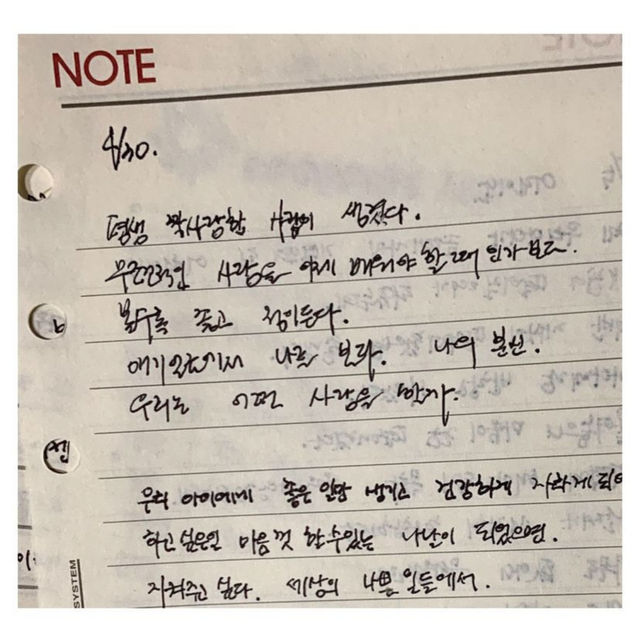 NOTE
4/30.
평생 짝사랑할 사람이 생겼다.
무조건적인 사랑을 이제 배워야 할 때 인가보다.
볼수록 좋고 정이든다.
애기 에게서 나를 보다. 나의 분신.
우리는 어떤 사랑을 할까.
우리 아이에게 좋은 일만 생기고 건강하게 자라게 되어
하고싶은일 마음껏 할 수 있는 나날이 되었으면.
지켜주고 싶다. 세상의 나쁜 일들에서.
SYSTEM